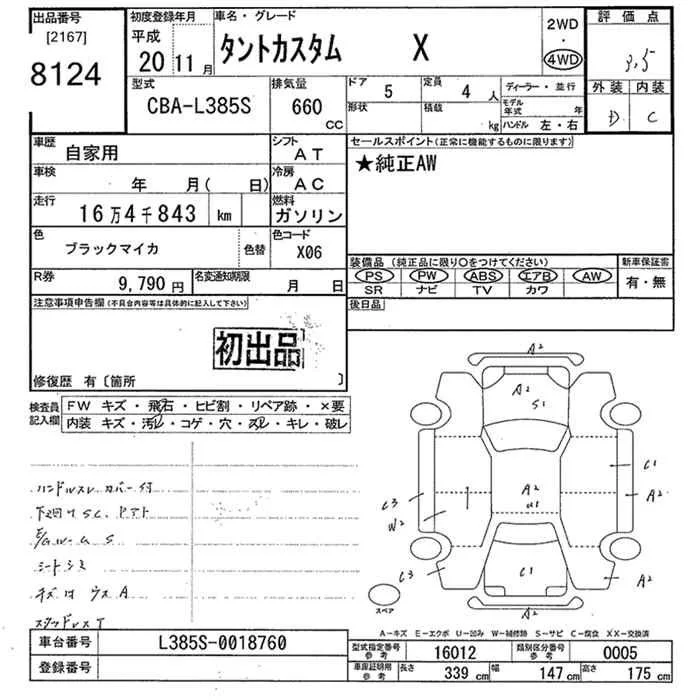 出品番号
[2167]
8124
初度登録年月
平成
20 11月
車名・グレード
タントカスタム X
2WD
・
4WD
評価点
3.5
外装 内装
D C
型式
CBA-L385S
排気量
660
CC
ドア
5
定員
4 人
形状
積載
kg
ディーラー・並行
モデル年式 年
ハンドル 左・右
車歴
自家用
シフト
AT
車検
年 月( 日)
冷房
AC
走行
16万4千843 km
燃料
ガソリン
色
ブラックマイカ
色替
色コード
X06
R券
9,790円
名変通知期限
月 日
セールスポイント(正常に機能するものに限ります)
★純正AW
装備品(純正品に限り〇をつけてください)
PS PW ABS エアB AW
SR ナビ TV カワ
新車保証書
有・無
後日品
注意事項申告欄(不具合内容等は具体的に記入して下さい)
初出品
修復歴 有〔箇所 〕
検査員
記入欄
FW キズ・飛石・ヒビ割・リペア跡・×要
内装 キズ・汚レ・コゲ・穴・スレ・キレ・破レ
ハンドルスレ カバー付
下廻り S.C.
シートシミ
キズ は ウス A
スタッドレス T
A2
A2
S1
C1
C3
A2
A2
U1
W2
C3
C1
A2
A2
スペア
A-キズ E-エクボ U-凹み W-補修跡 S-サビ C-腐食 XX-交換済
車台番号
L385S-0018760
登録番号
型式指定番号
参考
16012
類別区分番号
参考
0005
車庫証明用
参考
長さ
339 cm
幅
147 cm
高さ
175 cm